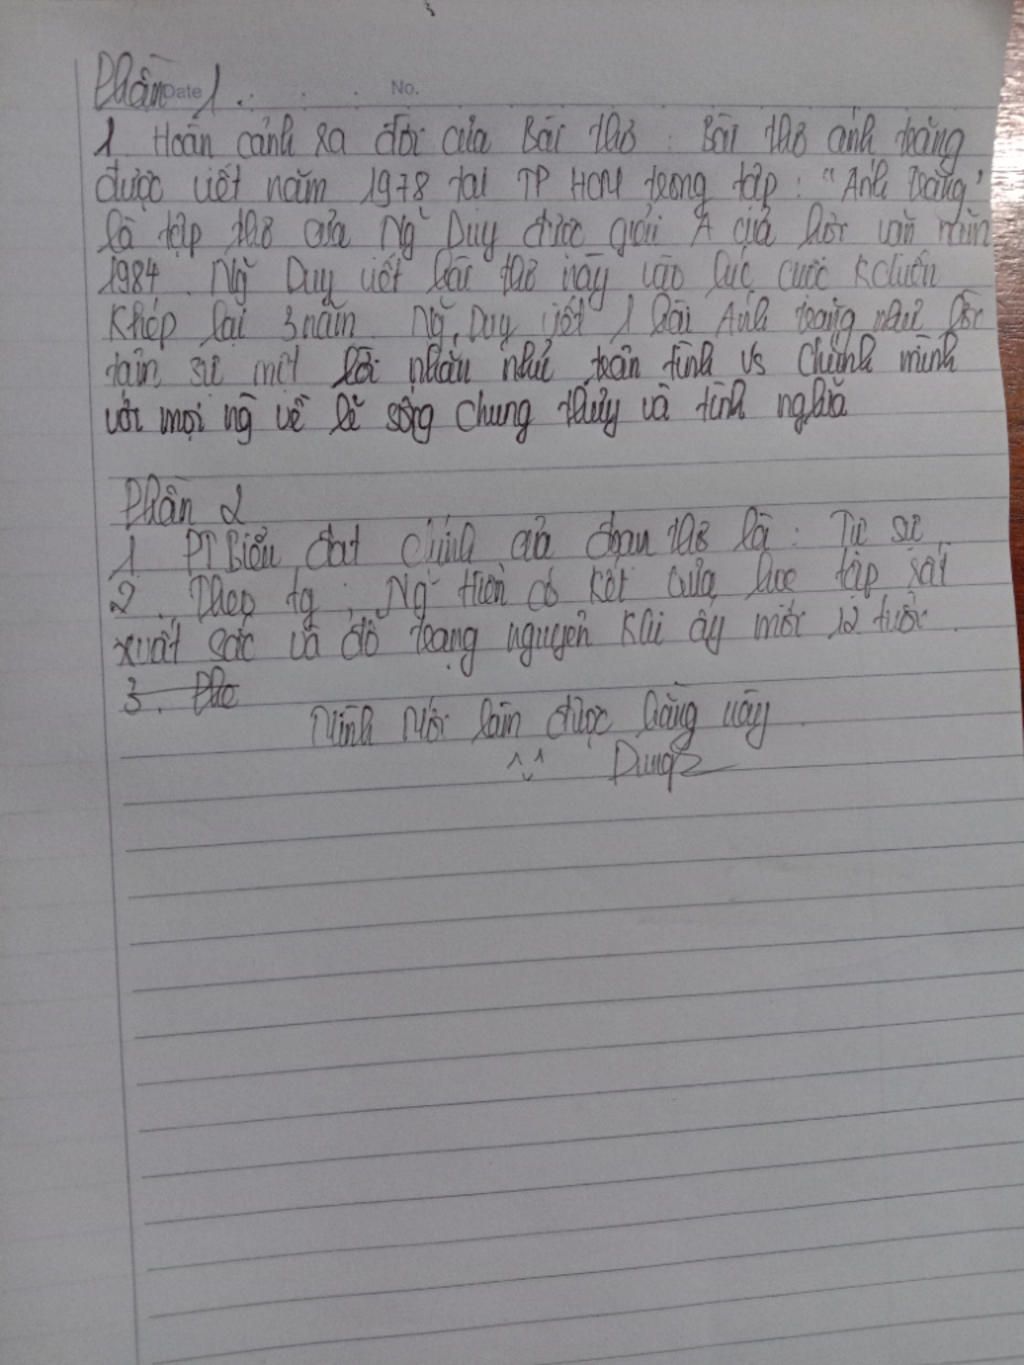 Phần 1
Date No.
1 Hoàn cảnh ra đời của Bài thơ : Bài thơ ánh trăng
được viết năm 1978 tại TP HCM trong tập : "Ánh trăng"
là tập thơ của Ng~ Duy được giải A của hội văn
1984. Ng~ Duy viết bài thơ này vào lúc cuộc Kchiến
Khép lại 3 năm Ng~. Duy viết 1 bài Ánh trăng như lời
tâm sự một lời nhắn nhủ tình vs chính mình
với mọi ng về lẽ sống chung thủy và tình nghĩa
Phần 2
1 PT Biểu đạt chính của đoạn thơ là : Tự sự.
2. Theo tg : Ng~ Hiền có kết quả học tập
xuất sắc và đỗ trạng nguyên khi ấy mới 12 tuổi.
3.
Mình mới làm được bằng này.
^-^ Dung2